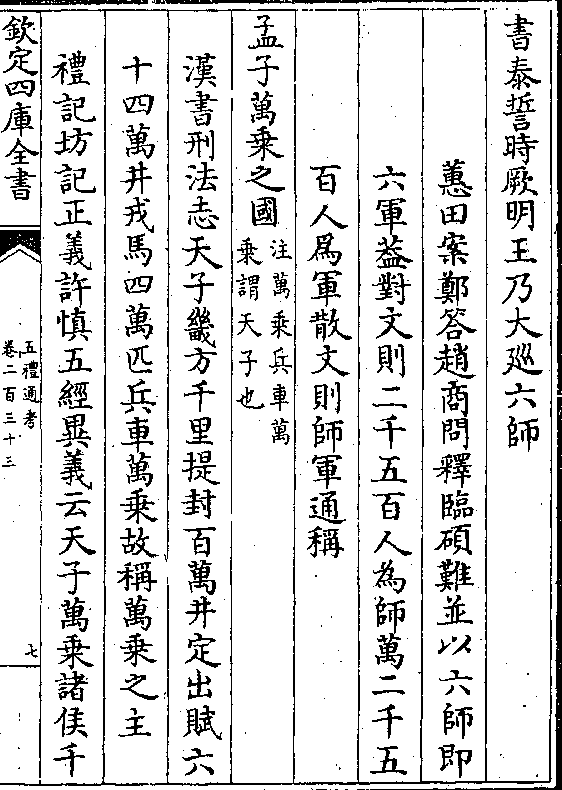 書泰誓時厥明王乃大廵六師
蕙田案鄭答趙商問釋臨碩難並以六師即
六軍葢對文則二千五百人為師萬二千五
百人爲軍散文則師軍通稱
孟子萬乗之國注萬乗兵車萬
乗謂天子也
漢書刑法志天子畿方千里提封百萬井定出賦六
十四萬井戎馬四萬匹兵車萬乗故稱萬乗之主
禮記坊記正義許慎五經異義云天子萬乗諸侯千
欽定四庫全書
五禮通考
卷二百三十三
七